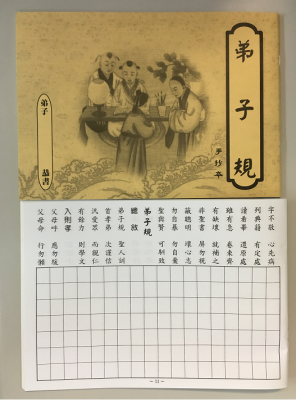 弟子規
手抄本
弟子 恭書
字不敬 心先病
列典籍 有定處
讀看畢 還原處
雖有急 卷束齊
有缺壞 就補之
非聖書 屏勿視
蔽聰明 壞心志
勿自暴 勿自棄
聖與賢 可馴致
弟子規
總敘
弟子規 聖人訓
首孝弟 次謹信
汎愛眾 而親仁
有餘力 則學文
入則孝
父母呼 應勿緩
父母命 行勿懶